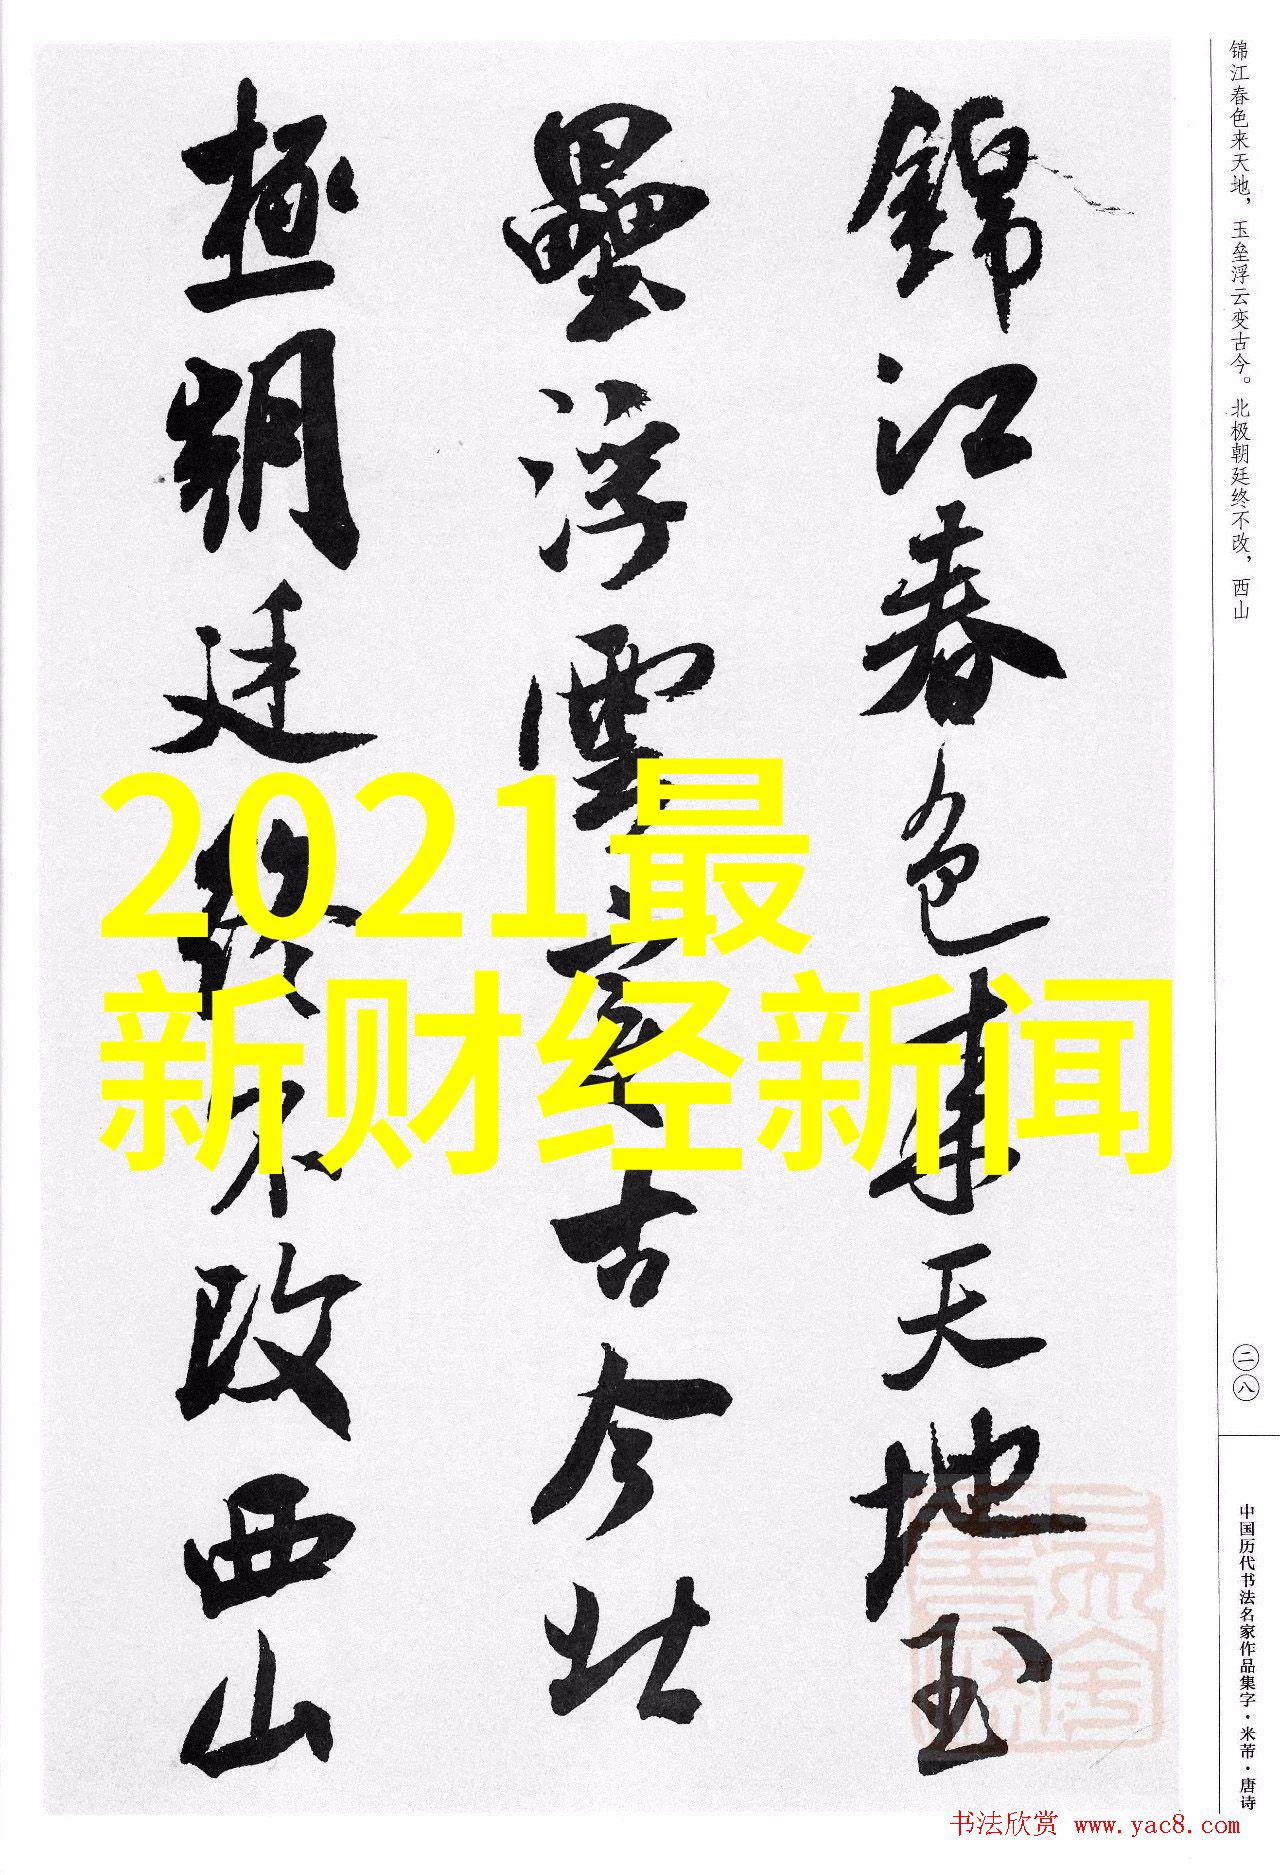 锦江春色来天地，玉垒浮云变古今。北极朝廷终不改，西山
錦江春色来天地玉
壘浮雲變古今北
極朝廷終不改西山
2021最
新财经新闻
二八
中国历代书法名家作品集字·米芾·唐诗
书法欣赏 www.yac8.com